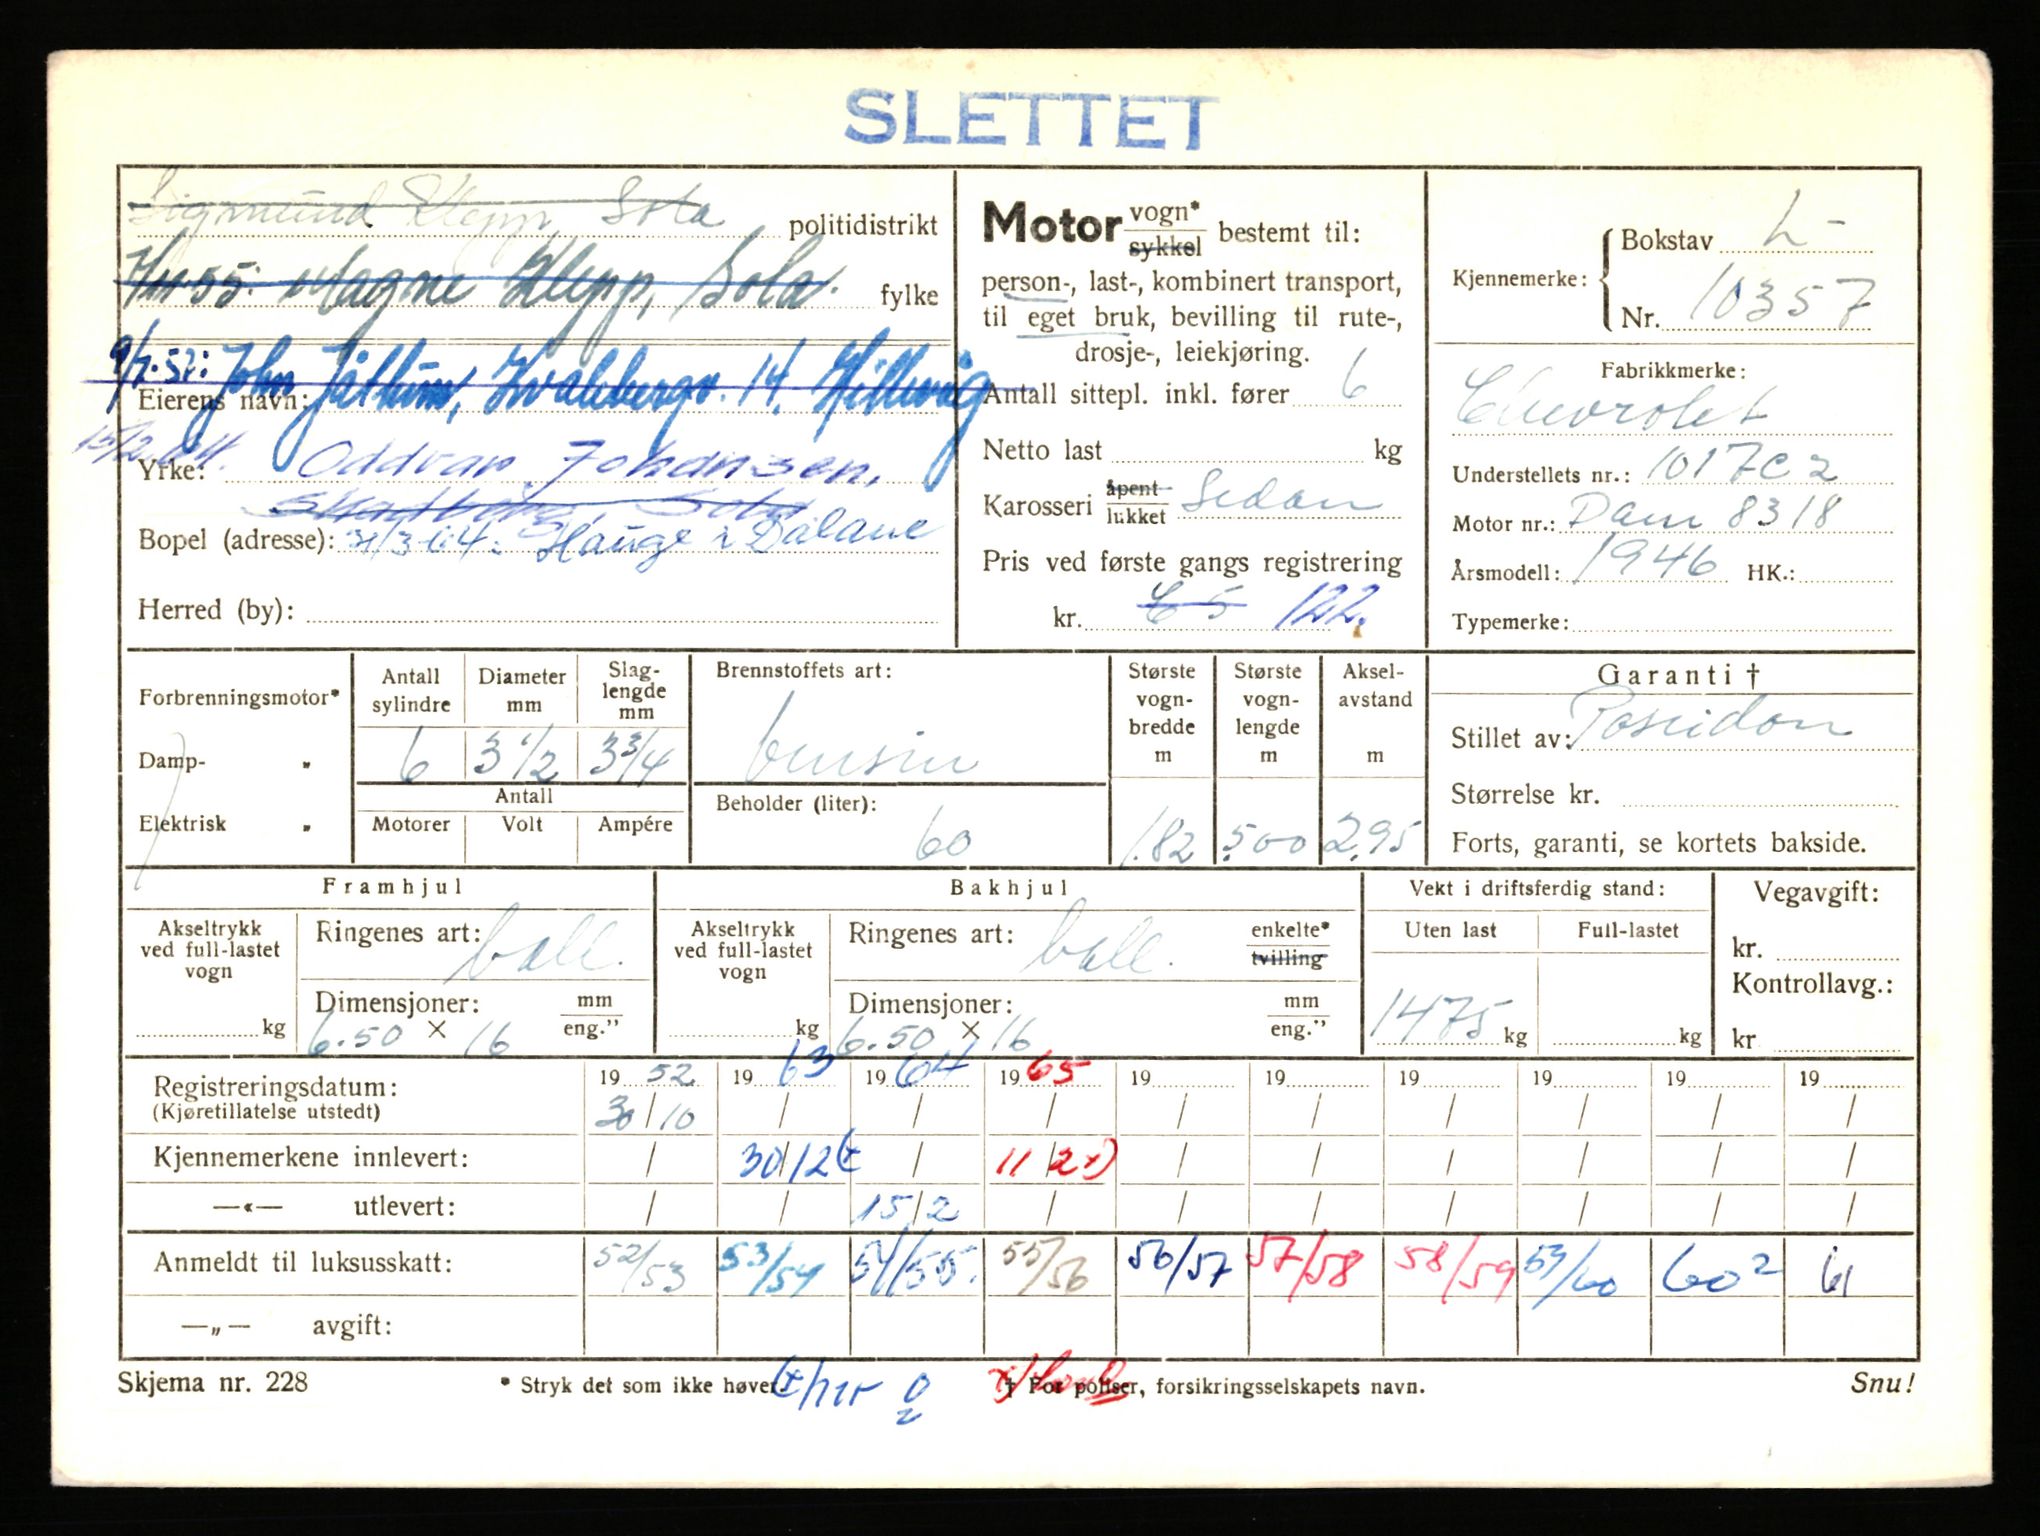 SLETTET
Sigmund Klepp, Sola
politidistrikt
Magne Klepp, Sola.
fylke
John Jåttum, Kvalebergv. 14, Hillevåg
Eierens navn:
15/2-64.
Yrke: Oddvar Johansen,
Sola
Bopel (adresse): 31/3-64: Hauge i Dalane
Herred (by):
Motor vogn* sykkel bestemt til:
person-, last-, kombinert transport,
til eget bruk, bevilling til rute-,
drosje-, leiekjøring.
Antall sittepl. inkl. fører 6
Netto last kg
Karosseri åpent lukket Sedan
Pris ved første gangs registrering
kr. C 5 122.
Kjennemerke: Bokstav L-
Nr. 10357
Fabrikkmerke:
Chevrolet
Understellets nr.: 1017C2
Motor nr.: Dam 8318
Årsmodell: 1946 HK.:
Typemerke:
Forbrenningsmotor*
Damp- "
Elektrisk "
Antall sylindre 6
Diameter mm 3 1/2
Slag-lengde mm 3 3/4
Antall
Motorer Volt Ampére
Brennstoffets art:
bensin
Beholder (liter):
60
Største vogn-bredde m 1.82
Største vogn-lengde m 5.00
Aksel-avstand m 2.95
Garanti †
Stillet av: Poseidon
Størrelse kr.
Forts, garanti, se kortets bakside.
Framhjul
Akseltrykk ved full-lastet vogn kg
Ringenes art: ball.
Dimensjoner: mm eng."
6.50 × 16
Bakhjul
Akseltrykk ved full-lastet vogn kg
Ringenes art: ball. enkelte* tvilling
Dimensjoner: mm eng."
6.50 × 16
Vekt i driftsferdig stand:
Uten last Full-lastet
1475 kg kg
Vegavgift:
kr.
Kontrollavg.:
kr
Registreringsdatum: 19 52 19 63 19 64 19 65 19 19 19 19 19 19
(Kjøretillatelse utstedt) 30/10 / / / / / / / / /
Kjennemerkene innlevert: / 30/12 / 11/2 x) / / / / / /
—«— utlevert: / / 15/2 / / / / / / /
Anmeldt til luksusskatt: 52/53 53/54 54/55. 55/56 56/57 57/58 58/59 59/60 60 2 61
—„— avgift:
Skjema nr. 228
* Stryk det som ikke høver.
† For poliser, forsikringsselskapets navn.
Snu!